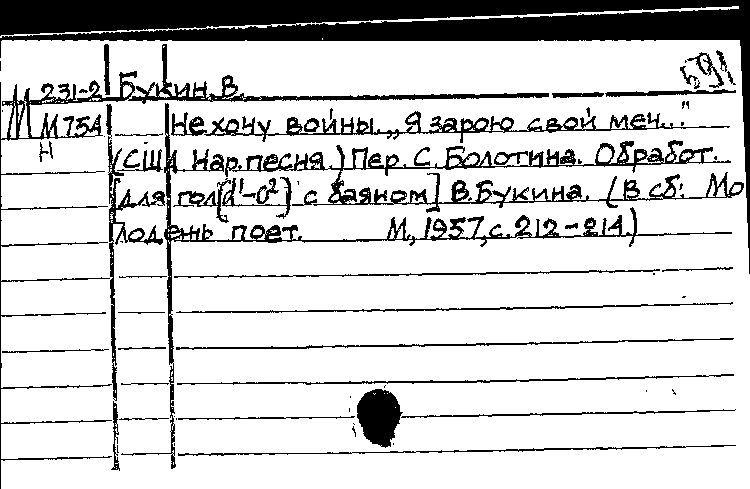 591
М 231-2 Букин, В.
М 754 Не хочу войны. „Я зарою свой меч..."
Н (США. Нар. песня.) Пер. С. Болотина. Обработ.
[для гол[d¹-c²] с баяном] В. Букина. (В сб: Мо
лодежь поет. М., 1957, с. 212-214.)